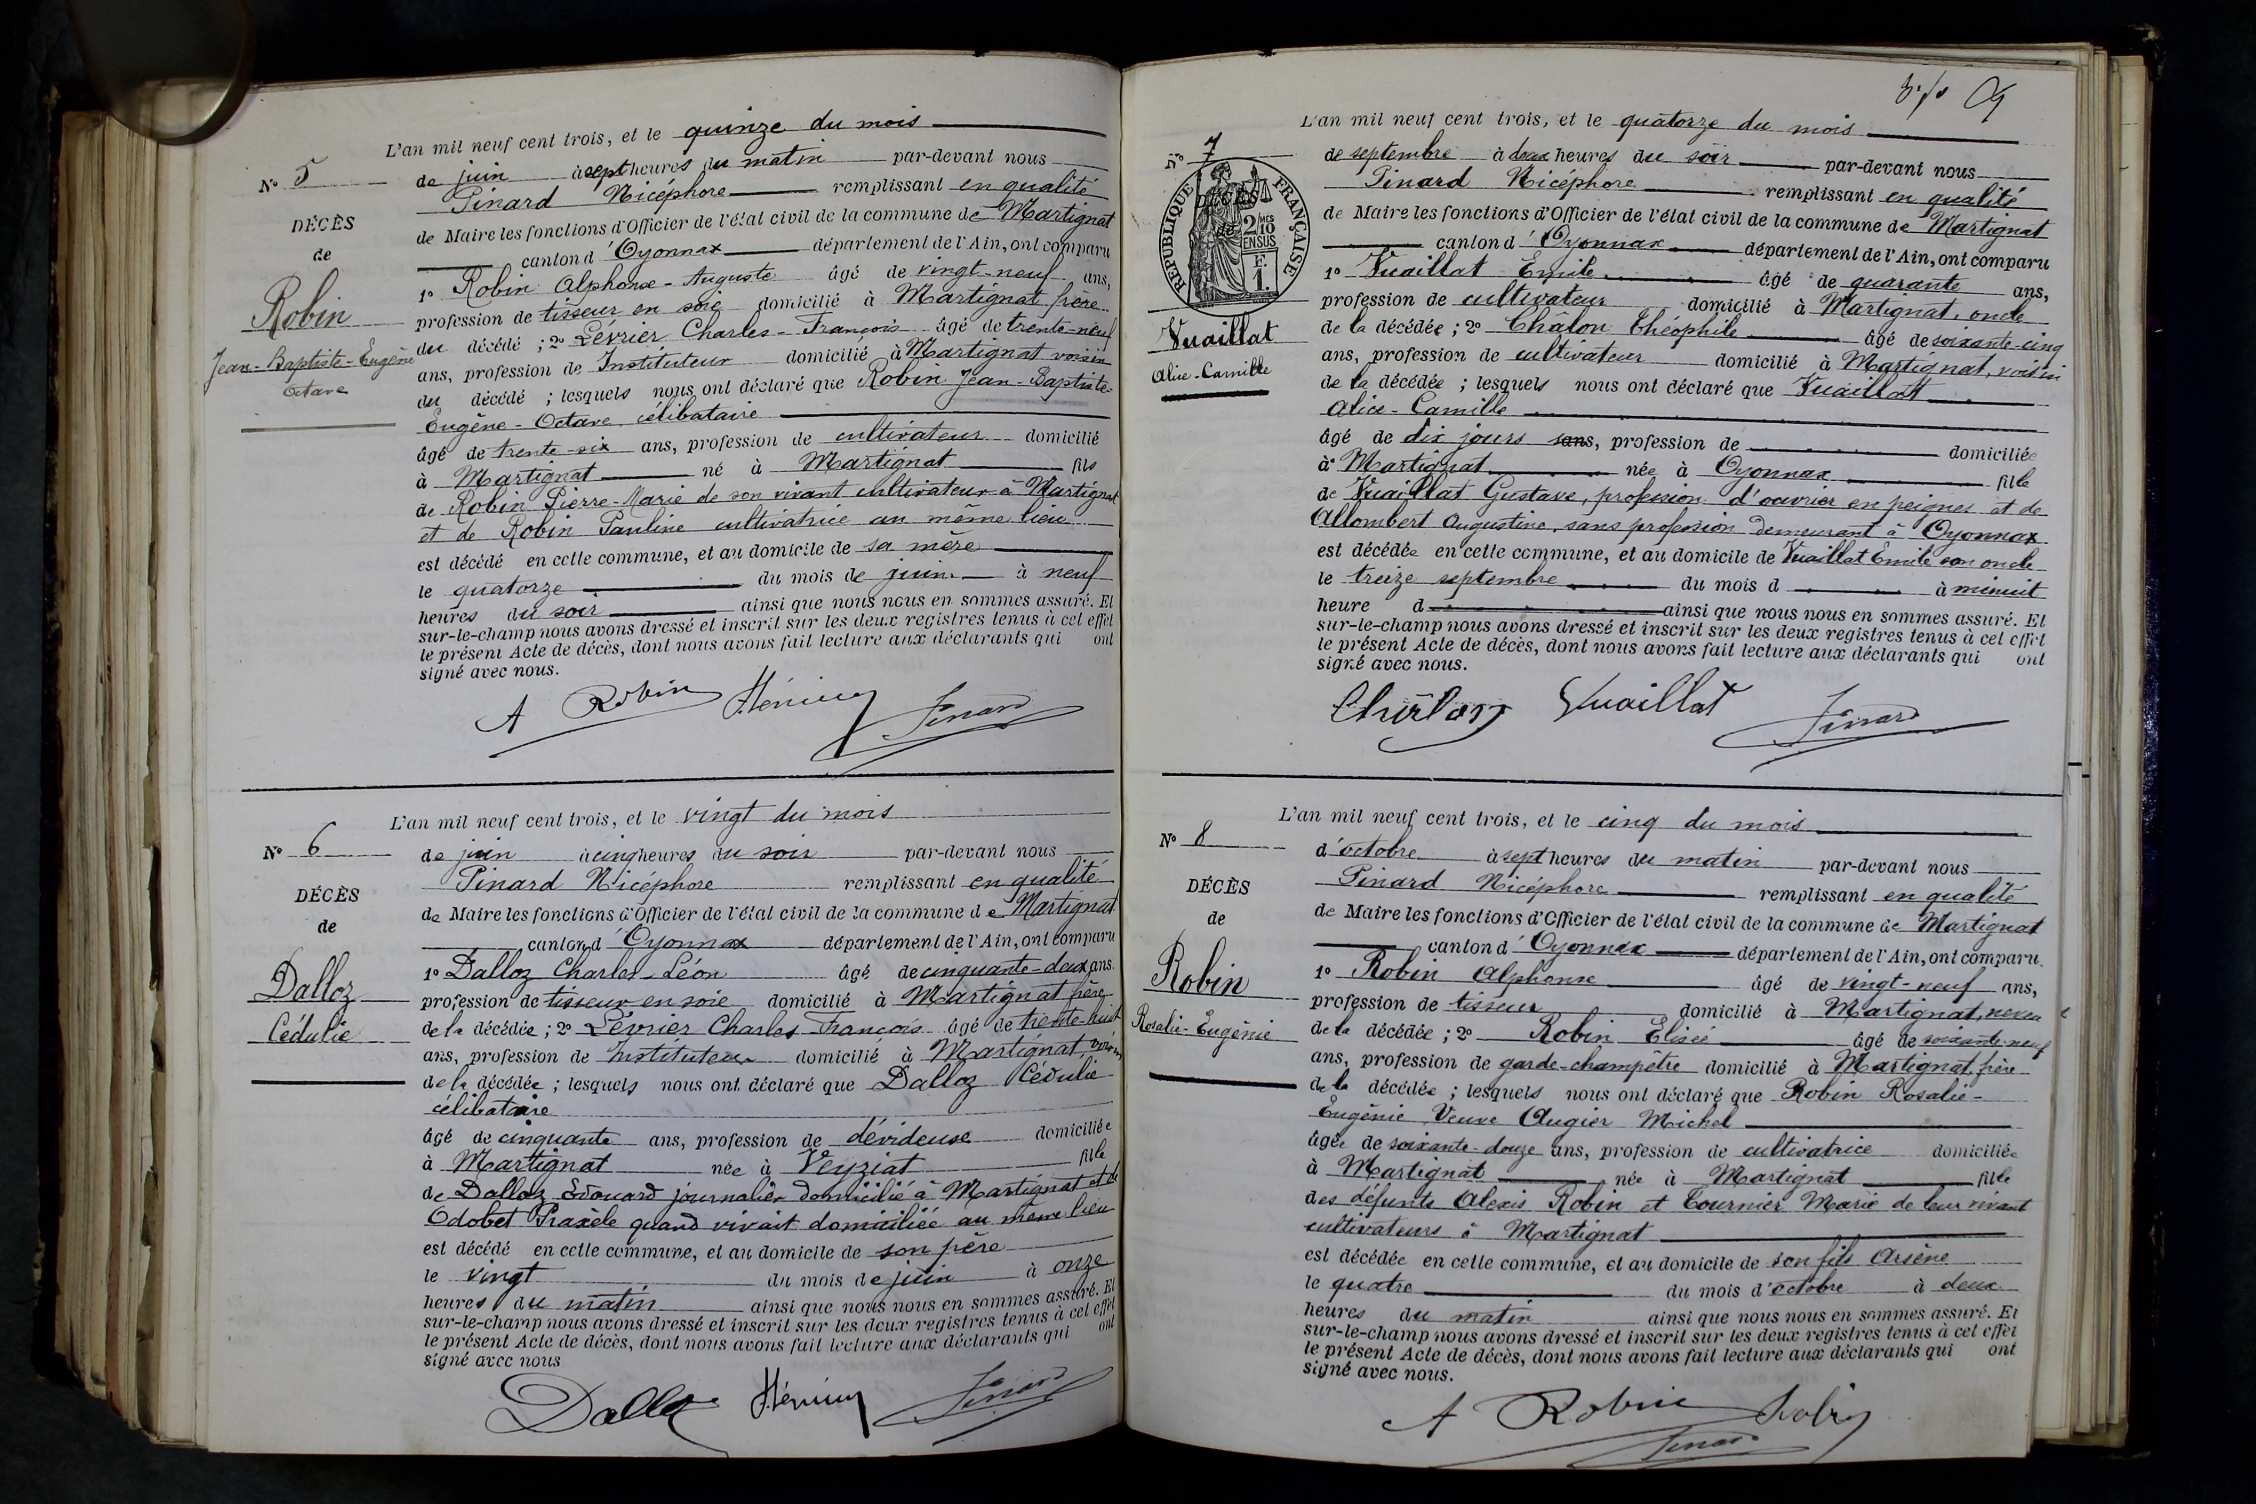 L'an mil neuf cent trois, et le quinze du mois
No 5
de juin à sept heures du matin par-devant nous
Pinard Nicéphore remplissant en qualité
DÉCÈS
de Maire les fonctions d'Officier de l'état civil de la commune de Martignat
de
canton d'Oyonnax département de l'Ain, ont comparu
Robin
1o Robin Alphonse-Auguste âgé de vingt-neuf ans,
profession de tisseur en soie domicilié à Martignat frère
Jean-Baptiste-Eugène
Octave
du décédé ; 2o Lévrier Charles-François âgé de trente-neuf
ans, profession de Instituteur domicilié à Martignat voisin
du décédé ; lesquels nous ont déclaré que Robin Jean-Baptiste-
Eugène-Octave, célibataire
âgé de trente-six ans, profession de cultivateur domicilié
à Martignat né à Martignat fils
de Robin Pierre-Marie de son vivant cultivateur à Martignat
et de Robin Pauline cultivatrice au même lieu
est décédé en cette commune, et au domicile de sa mère
le quatorze du mois de juin à neuf
heures du soir ainsi que nous nous en sommes assuré. Et
sur-le-champ nous avons dressé et inscrit sur les deux registres tenus à cet effet
le présent Acte de décès, dont nous avons fait lecture aux déclarants qui ont
signé avec nous.
A Robin Pinard
L'an mil neuf cent trois, et le vingt du mois
No 6
de juin à cinq heures du soir par-devant nous
Pinard Nicéphore remplissant en qualité
DÉCÈS
de Maire les fonctions d'Officier de l'état civil de la commune de Martignat
de
canton d'Oyonnax département de l'Ain, ont comparu
Dalloz
Cédulie
1o Dalloz Charles-Léon âgé de cinquante-deux ans
profession de tisseur en soie domicilié à Martignat frère
de la décédée ; 2o Lévrier Charles-François âgé de trente-huit
ans, profession de Instituteur domicilié à Martignat, voisin
de la décédée ; lesquels nous ont déclaré que Dalloz Cédulie
célibataire
âgé de cinquante ans, profession de dévideuse domiciliée
à Martignat née à Veyziat fille
de Dalloz Edouard journalier domicilié à Martignat et de
Odobet Praxèle quand vivait domiciliée au même lieu
est décédé en cette commune, et au domicile de son père
le vingt du mois de juin à onze
heures du matin ainsi que nous nous en sommes assuré. Et
sur-le-champ nous avons dressé et inscrit sur les deux registres tenus à cet effet
le présent Acte de décès, dont nous avons fait lecture aux déclarants qui ont
signé avec nous
Dalloz Pinard
L'an mil neuf cent trois, et le quatorze du mois
No 7
de septembre à deux heures du soir par-devant nous
Pinard Nicéphore remplissant en qualité
RÉPUBLIQUE FRANÇAISE
DÉCÈS
de
2/10 MES
EN SUS
F.
1.
de Maire les fonctions d'Officier de l'état civil de la commune de Martignat
canton d'Oyonnax département de l'Ain, ont comparu
1o Vuaillat Emile âgé de quarante ans,
profession de cultivateur domicilié à Martignat, oncle
Vuaillat
Alice-Camille
de la décédée ; 2o Châlon Théophile âgé de soixante-cinq
ans, profession de cultivateur domicilié à Martignat, voisin
de la décédée ; lesquels nous ont déclaré que Vuaillat
Alice-Camille
âgé de dix jours sans, profession de domiciliée
à Martignat née à Oyonnax fille
de Vuaillat Gustave, profession d'ouvrier en peignes et de
Allombert Augustine, sans profession demeurant à Oyonnax
est décédée en cette commune, et au domicile de Vuaillat Emile son oncle
le treize septembre du mois d à minuit
heure d ainsi que nous nous en sommes assuré. Et
sur-le-champ nous avons dressé et inscrit sur les deux registres tenus à cet effet
le présent Acte de décès, dont nous avons fait lecture aux déclarants qui ont
signé avec nous.
Châlon Vuaillat Pinard
L'an mil neuf cent trois, et le cinq du mois
No 8
d'octobre à sept heures du matin par-devant nous
Pinard Nicéphore remplissant en qualité
DÉCÈS
de Maire les fonctions d'Officier de l'état civil de la commune de Martignat
de
canton d'Oyonnax département de l'Ain, ont comparu
Robin
Rosalie-Eugénie
1o Robin Alphonse âgé de vingt-neuf ans,
profession de tisseur domicilié à Martignat, neveu
de la décédée ; 2o Robin Elisée âgé de soixante-neuf
ans, profession de garde-champêtre domicilié à Martignat, frère
de la décédée ; lesquels nous ont déclaré que Robin Rosalie-
Eugénie Veuve Augier Michel
âgée de soixante-douze ans, profession de cultivatrice domiciliée
à Martignat née à Martignat fille
des défunts Alexis Robin et Tournier Marie de leur vivant
cultivateurs à Martignat
est décédée en cette commune, et au domicile de son fils Arsène
le quatre du mois d'octobre à deux
heures du matin ainsi que nous nous en sommes assuré. Et
sur-le-champ nous avons dressé et inscrit sur les deux registres tenus à cet effet
le présent Acte de décès, dont nous avons fait lecture aux déclarants qui ont
signé avec nous.
A Robin Robin
Pinard